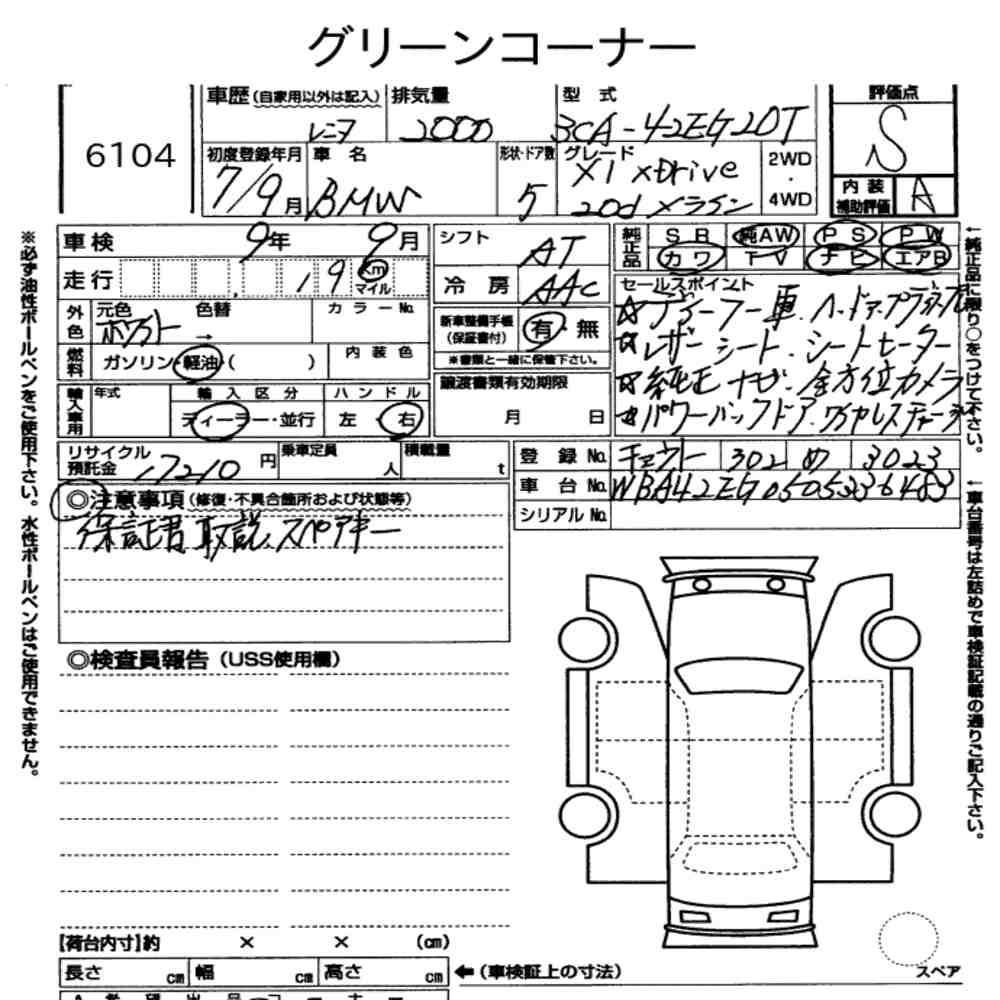 グリーンコーナー
6104
車歴(自家用以外は記入) 排気量 型式 評価点
レンタ 2000 3CA-42EG20T S
初度登録年月 車名 形状・ドア数 グレード 2WD・4WD
7/9月 BMW 5 X1 xDrive 20d Xライン
内装補助評価 A
車検 9年 9月 シフト AT
純正品 SR 純AW PS PW
カワ TV ナビ エアB
走行 19 km マイル 冷房 AAC
セールスポイント
☆ディーラー車.ハードアップラテ
☆レザーシート.シートヒーター
☆純正ナビ.全方位カメラ
☆パワーバックドア.ワイヤレスチャージ
外色 元色 色替 カラーNo.
ホワイト →
新車整備手帳(保証書付) 有・無
※書類と一緒に保管下さい。
燃料 ガソリン・軽油・( ) 内装色
輸入車用 年式 輸入区分 ハンドル
ディーラー・並行 左・右
譲渡書類有効期限
月 日
リサイクル預託金 17210円 乗車定員 人 積載量 t
登録No. 302 め 3023
車台No. WBA42EG0505336483
シリアルNo.
◎注意事項(修復・不具合箇所および状態等)
保証書 取説.スペアキー
◎検査員報告(USS使用欄)
【荷台内寸】約 × × (cm)
長さ cm 幅 cm 高さ cm ←(車検証上の寸法)
スペア
※必ず油性ボールペンをご使用下さい。水性ボールペンはご使用できません。
←純正品に限り○をつけて下さい。
←車台番号は左詰めで車検証記載の通りご記入下さい。